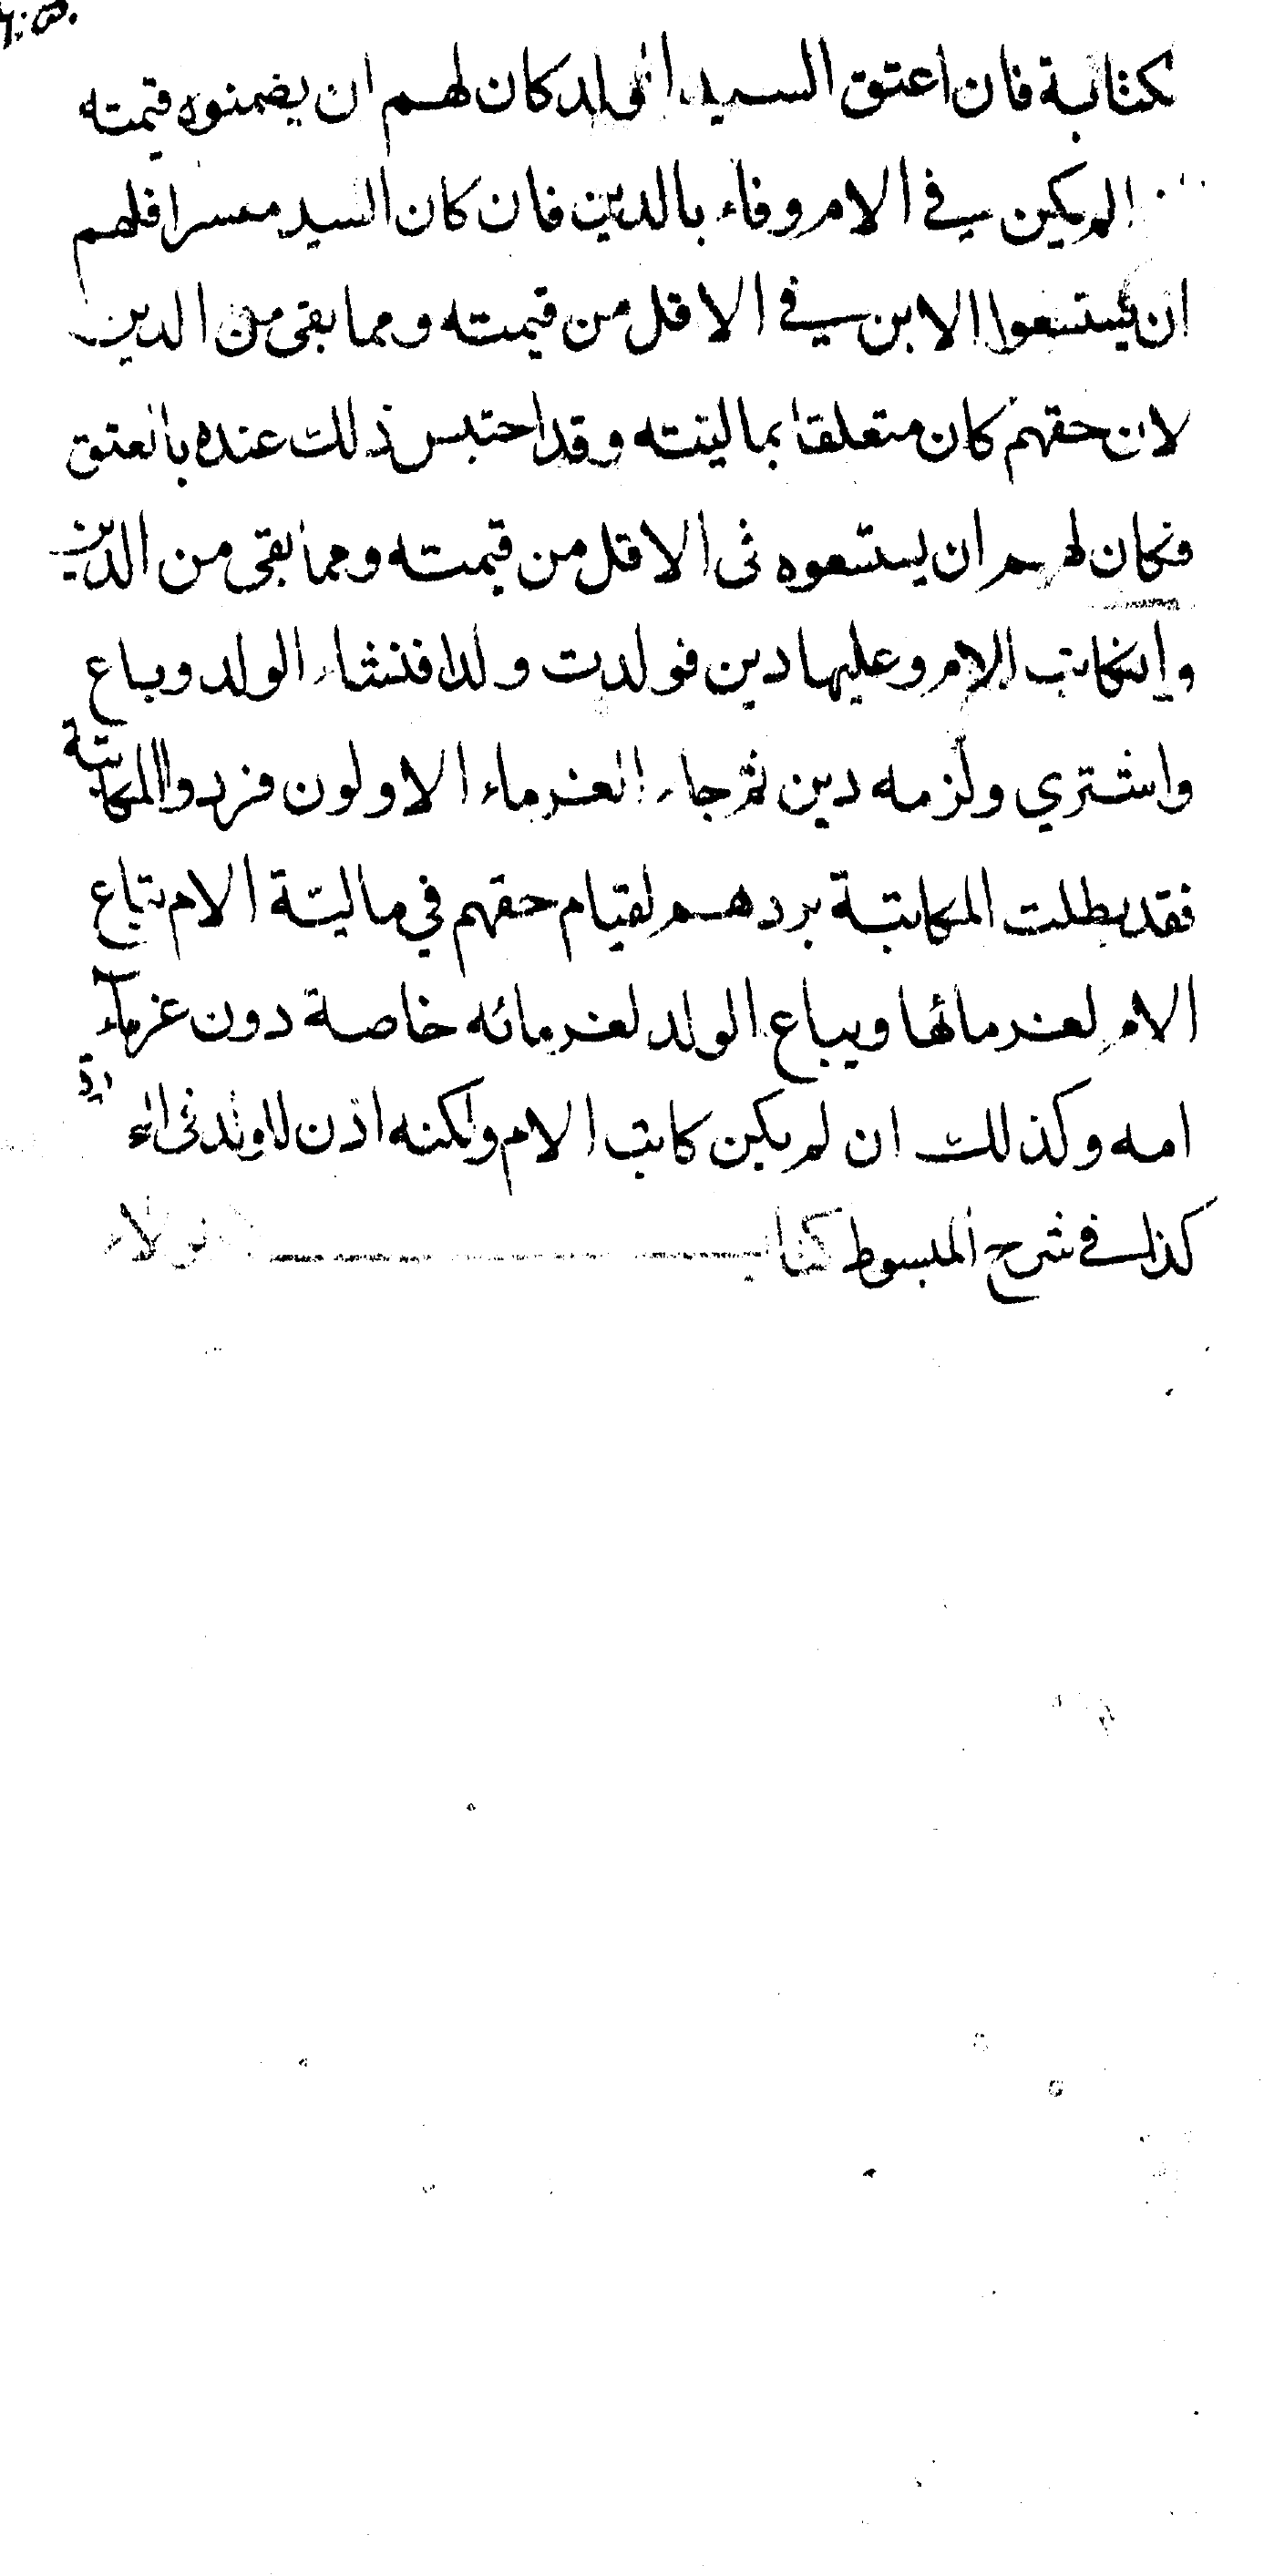 كتابة فان اعتق السيد الولد كان لهم ان يضمنوه قيمته
لم يكن في الام وفاء بالدين فان كان السيد معسرا فلهم
ان يستسعوا الابن في الاقل من قيمته ومما بقى من الدين
لان حقهم كان متعلقا بماليته وقد احتبس ذلك عنده بالعتق
فكان لهم ان يستسعوه فى الاقل من قيمته ومما بقى من الدين
وان كاتب الام وعليها دين فولدت ولدا فنشاء الولد وباع
واشتري ولزمه دين ثم جاء الغرماء الاولون فردوا المكاتبة
فقد بطلت المكاتبة بردهم لقيام حقهم في مالية الام تباع
الام لغرمائها ويباع الولد لغرمائه خاصة دون غرماء
امه وكذلك ان لم يكن كاتب الام ولكنه اذن للولد فى
كذا في شرح المبسوط كتاب الولاء